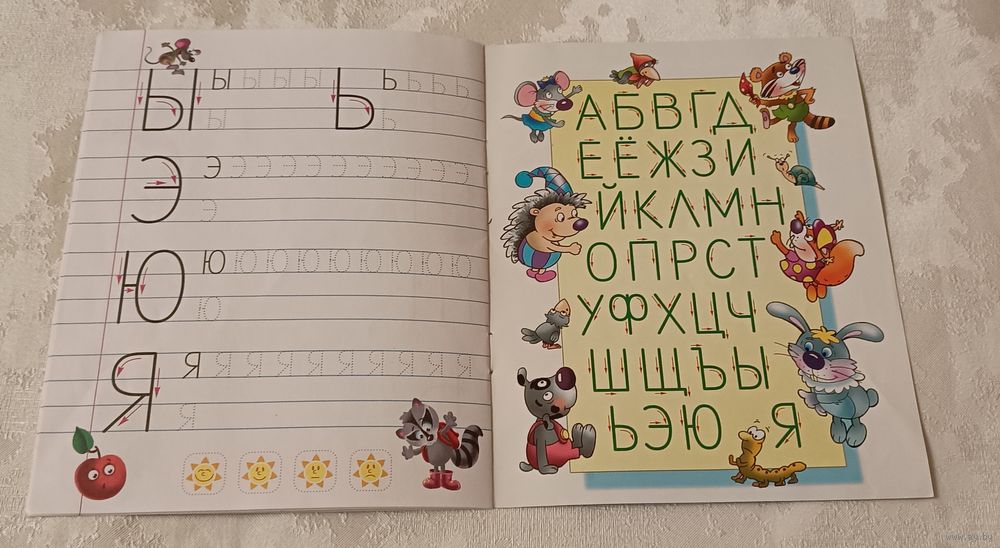 Ы Ы Ы Ы Ы Ь Ь Ь Ь Ь
Ы Ь
Э Э Э Э Э Э Э Э Э Э Э Э
Э
Ю Ю Ю Ю Ю Ю Ю Ю Ю Ю
Ю
Я Я Я Я Я Я Я Я Я Я Я
Я
АБВГД
ЕЁЖЗИ
ЙКЛМН
ОПРСТ
УФХЦЧ
ШЩЪЫ
ЬЭЮ Я
www.ay.by